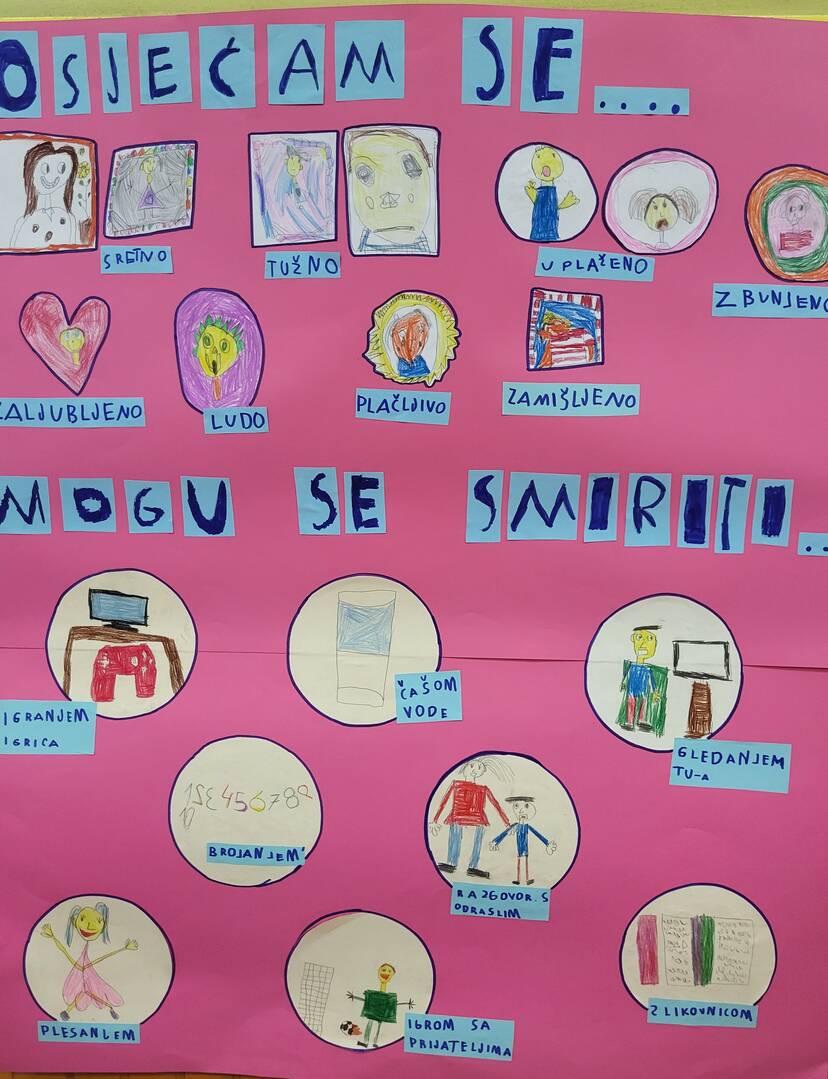 OSJEĆAM SE....
SRETNO
TUŽNO
UPLAŽENO
ZBUNJENO
ZALJUBLJENO
LUDO
PLAČLJIVO
ZAMIŠLJENO
MOGU SE SMIRITI..
IGRANJEM
IGRICA
ČAŠOM
VODE
GLEDANJEM
TU-a
12345678910
BROJANJEM
RAZGOVOR. S
ODRASLIM
PLESANJEM
IGROM SA
PRIJATELJIMA
Z LIKOVNICOM